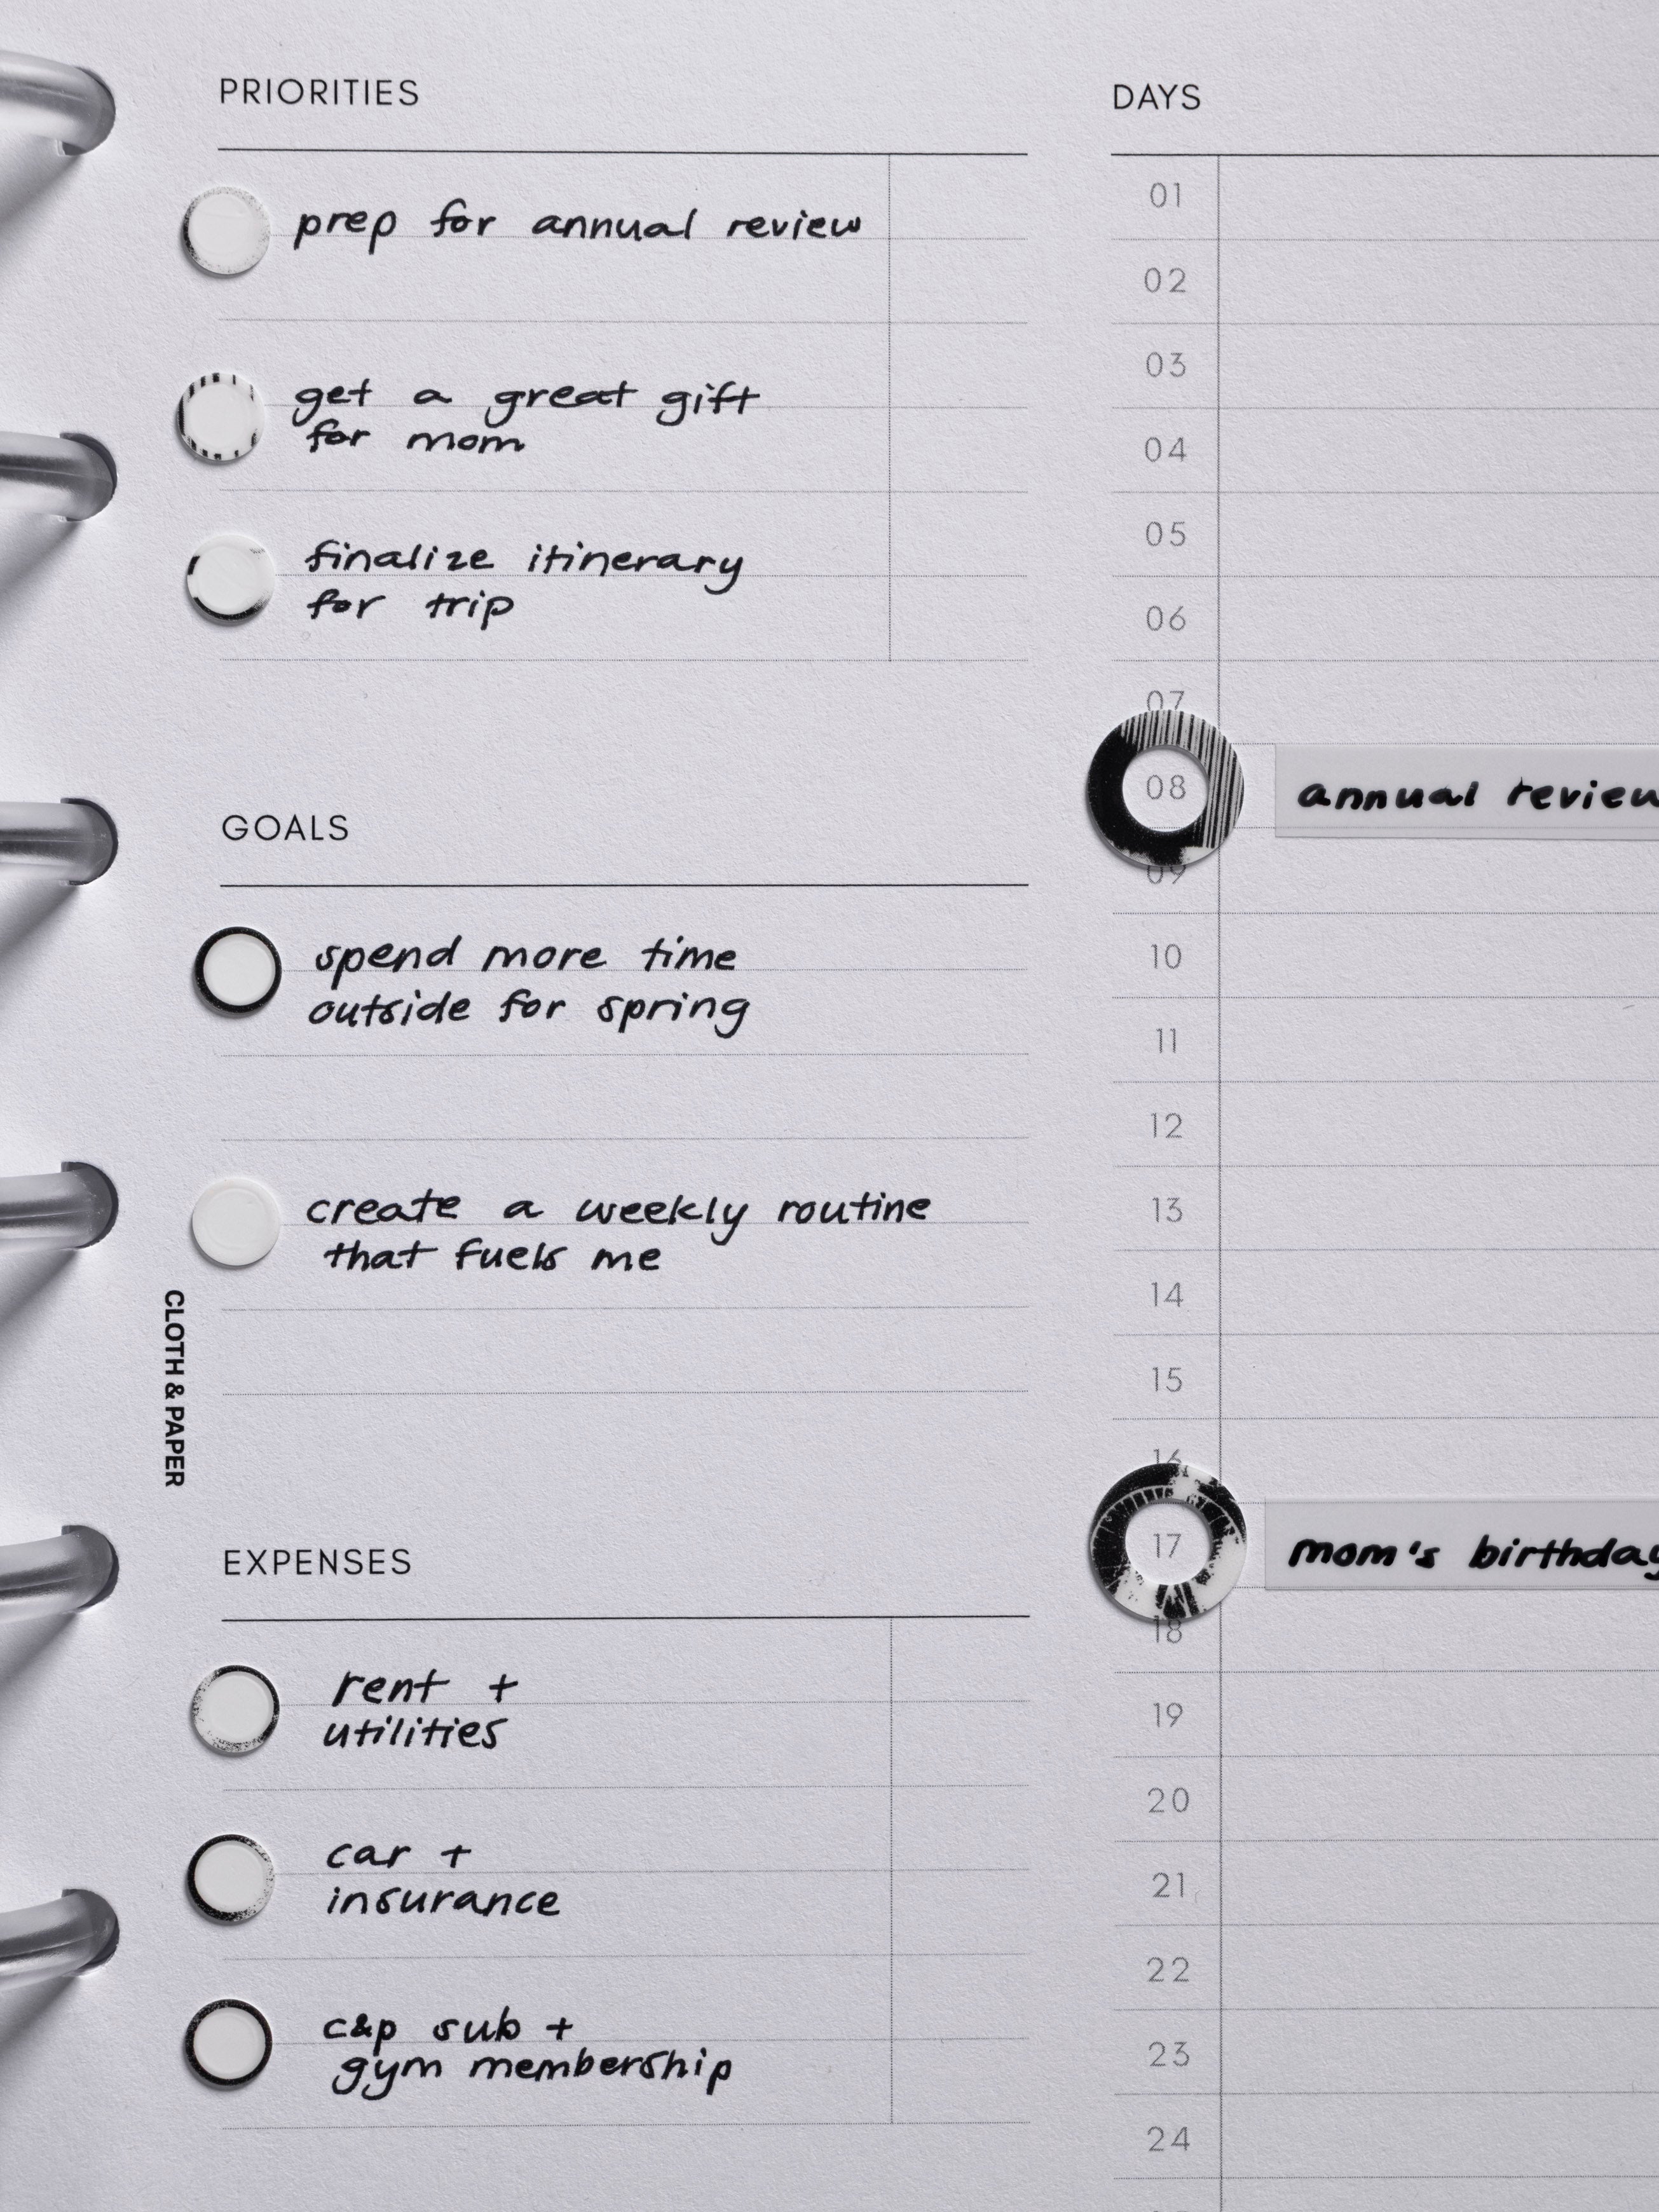 PRIORITIES
prep for annual review
get a great gift
for mom
finalize itinerary
for trip
GOALS
spend more time
outside for spring
create a weekly routine
that fuels me
CLOTH & PAPER
EXPENSES
rent +
utilities
car +
insurance
c&p sub +
gym membership
DAYS
01
02
03
04
05
06
07
08 annual review
09
10
11
12
13
14
15
16
17 mom's birthday
18
19
20
21
22
23
24